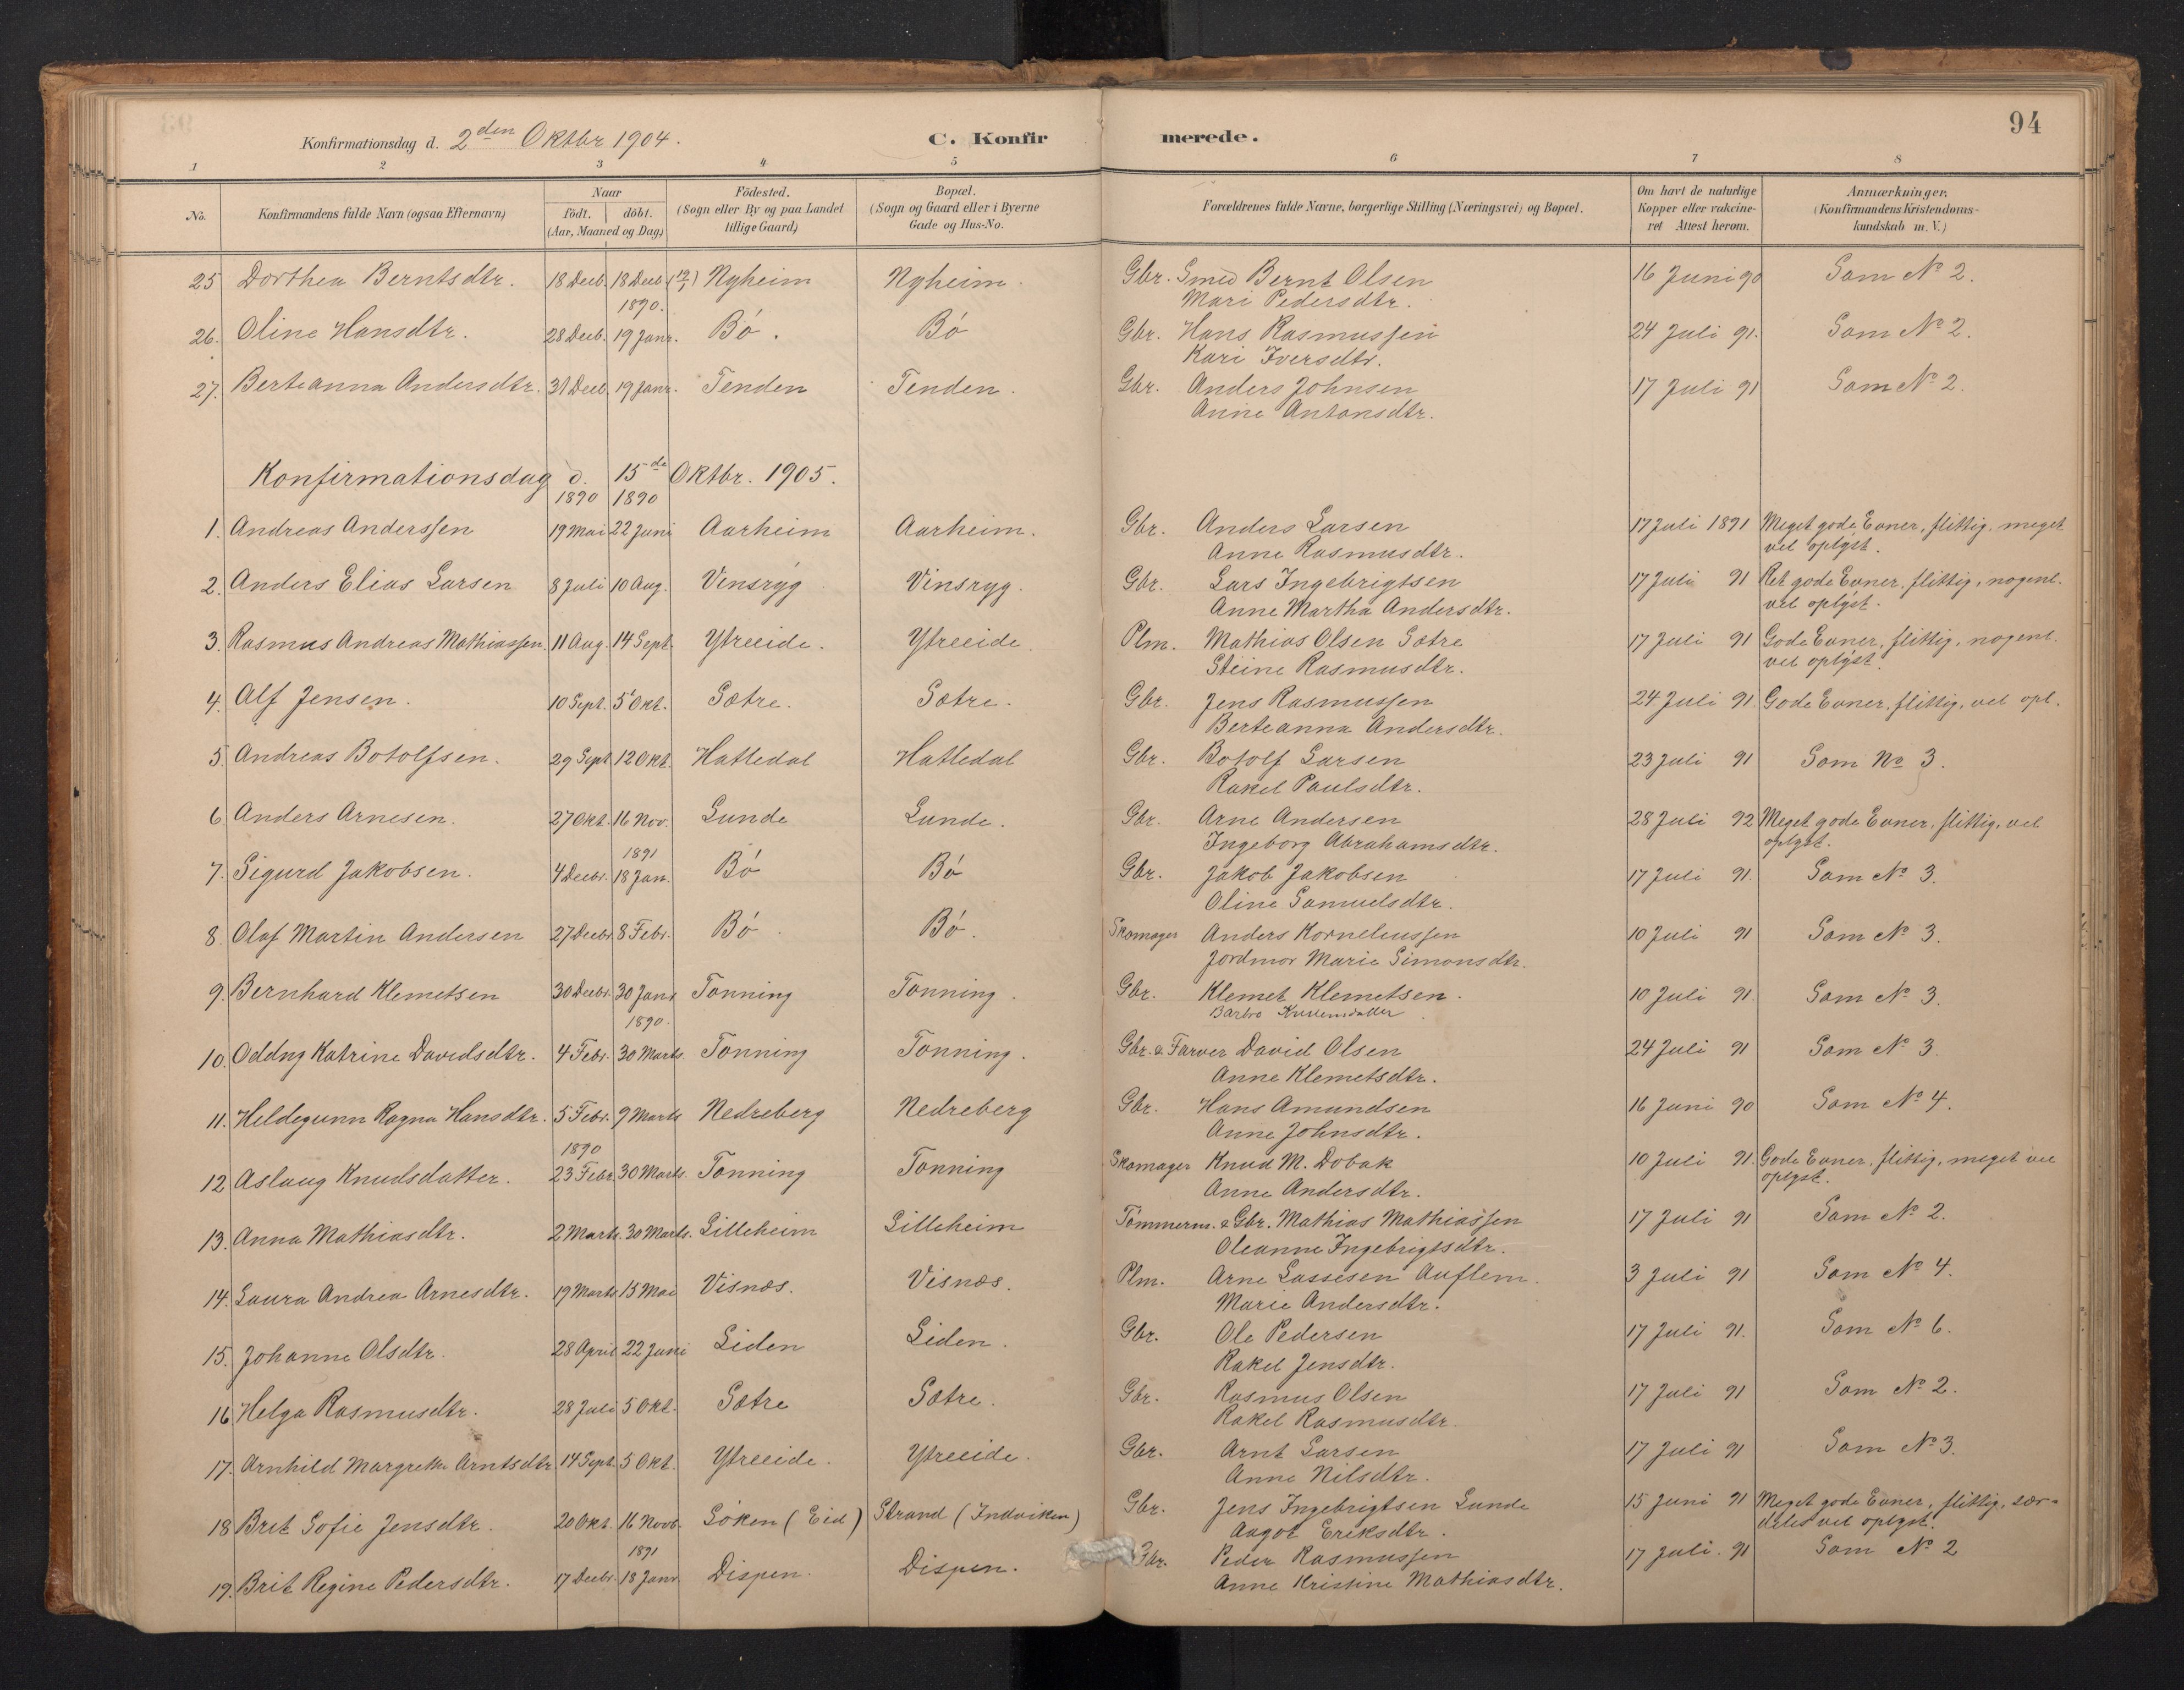 94
Konfirmationsdag d. 2den Oktbr 1904.
C. Konfirmerede.
1 2 3 4 5 6 7 8
No. Konfirmandens fulde Navn (ogsaa Efternavn) Naar födt. döbt. (Aar, Maaned og Dag) Födested. (Sogn eller By og paa Landet tillige Gaard) Bopæl. (Sogn og Gaard eller i Byerne Gade og Hus-No. Forældrenes fulde Navne, borgerlige Stilling (Næringsvei) og Bopæl. Om havt de naturlige Kopper eller vakcineret Attest herom. Anmærkninger. (Konfirmandens Kristendomskundskab m.V.)
25 Dorthea Berntsdtr. 18 Decb. 18 Decb (19/1) Nyheim Nyheim. Gbr. Smed Bernt Olsen 16 Juni 90 Som No 2.
1890. Mari Pedersdtr.
26. Oline Hansdtr. 28 Decb. 19 Janr. Bö. Bö Gbr. Hans Rasmussen 24 Juli 91. Som No 2.
Kari Iversdtr.
27. Berteanna Andersdtr. 31 Decb. 19 Janr. Tenden Tenden. Gbr. Anders Johnsen 17 Juli 91 Som No 2.
Anne Antonsdtr.
Konfirmationsdag d. 15de Oktbr. 1905.
1890 1890
1. Andreas Anderssen 19 Mai 22 Juni Aarheim Aarheim. Gbr. Anders Larsen 17 Juli 1891 Meget gode Evner, flittig, meget
Anne Rasmusdtr. vel oplyst.
2. Anders Elias Larsen 8 Juli 10 Aug. Vinsryg Vinsryg. Gbr. Lars Ingebrigtsen 17 Juli 91 Ret gode Evner, flittig, nogenl.
Anne Martha Andersdtr. vel oplyst.
3. Rasmus Andreas Mathiassen. 11 Aug. 14 Sept. Ytreeide. Ytreeide. Plm. Mathias Olsen Sætre 17 Juli 91 Gode Evner, flittig, nogenl.
Steine Rasmusdtr. vel oplyst.
4. Alf Jensen. 10 Sept. 5 Okt. Sætre. Sætre. Gbr. Jens Rasmussen 24 Juli 91. Gode Evner, flittig, vel opl.
Berteanna Andersdtr.
5. Andreas Botolfsen. 29 Sept. 12 Okt. Hatledal Hatledal Gbr. Botolf Larsen 23 Juli 91 Som No 3.
Rakel Paulsdtr.
6. Anders Arnesen. 27 Okt. 16 Nov. Lunde Lunde. Gbr. Arne Andersen 28 Juli 92 Meget gode Evner, flittig, vel
Ingeborg Abrahamsdtr. oplyst.
1891
7. Sigurd Jakobsen. 4 Decbr. 18 Jan. Bö Bö Gbr. Jakob Jakobsen 17 Juli 91. Som No 3.
Oline Samuelsdtr.
8. Olaf Martin Andersen 27 Decbr. 8 Febr. Bö. Bö. Skomager Anders Korneliussen 10 Juli 91 Som No 3.
Jordmor Marie Simonsdtr.
9. Bernhard Klemetsen 30 Decbr. 30 Janr. Tonning Tonning. Gbr. Klemet Klemetsen. 10 Juli 91. Som No 3.
1890. Barbro
10. Oddny Katrine Davidsdtr. 4 Febr. 30 Marts Tonning Tonning. Gbr. & Farver David Olsen 24 Juli 91 Som No 3.
Anne Klemetsdtr.
11. Heldegunn Ragna Hansdtr. 5 Febr. 9 Marts Nedreberg Nedreberg Gbr. Hans Amundsen 16 Juni 90 Som No 4.
Anne Johnsdtr.
1890
12. Aslaug Knudsdatter. 23 Febr. 30 Marts. Tonning Tonning Skomager Knud M. Dobak 10 Juli 91. Gode Evner, flittig, meget vel
Anne Andersdtr. oplyst.
13. Anna Mathiasdtr. 2 Marts. 30 Marts. Lilleheim Lilleheim Tömmerm. & Gbr. Mathias Mathiassen 17 Juli 91 Som No 2.
Oleanne Ingebrigtsdtr.
14. Laura Andrea Arnesdtr. 19 Marts 15 Mai Visnæs. Visnæs. Plm. Arne Lassesen Auflem. 3 Juli 91 Som No 4.
Marie Andersdtr.
15. Johanne Olsdtr. 28 April 22 Juni Liden Liden. Gbr. Ole Pedersen 17 Juli 91. Som No 6.
Rakel Jensdtr.
16 Helga Rasmusdtr. 28 Juli 5 Okt. Sætre Sætre. Gbr. Rasmus Olsen 17 Juli 91 Som No 2.
Rakel Rasmusdtr.
17. Arnhild Margrethe Arntsdtr 14 Sept. 5 Okt. Ytreeide. Ytreeide. Gbr. Arnt Larsen 17 Juli 91 Som No 3.
Anne Nilsdtr.
18 Brit Sofie Jensdtr. 20 Okt. 16 Novb. Löken (Eid) Strand (Indviken) Gbr. Jens Ingebrigtsen Lunde 15 Juni 91 Meget gode Evner, flittig, sær-
Aagot Eriksdtr. deles vel oplyst.
1891
19. Brit Regine Pedersdtr. 17 Decbr. 18 Janr. Dispen. Dispen. Gbr. Peder Rasmussen 17 Juli. 91 Som No 2
Anne Kristine Mathiasdtr.